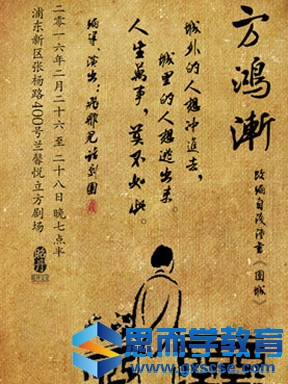 方鴻漸
改编自钱锺书《围城》
城外的人想冲進去,
城里的人想逃出来。
人生萬事,莫不如此。
编导、演出:
二零一六年二月二十六至二十八日 晚七点半
浦东新区张杨路400号兰馨悦立方剧场
思而学教育
www.gxscse.com